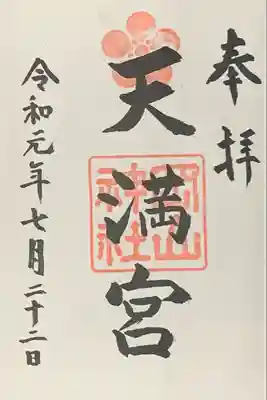 奉拝
天満宮
岡山神社
令和元年七月二十二日